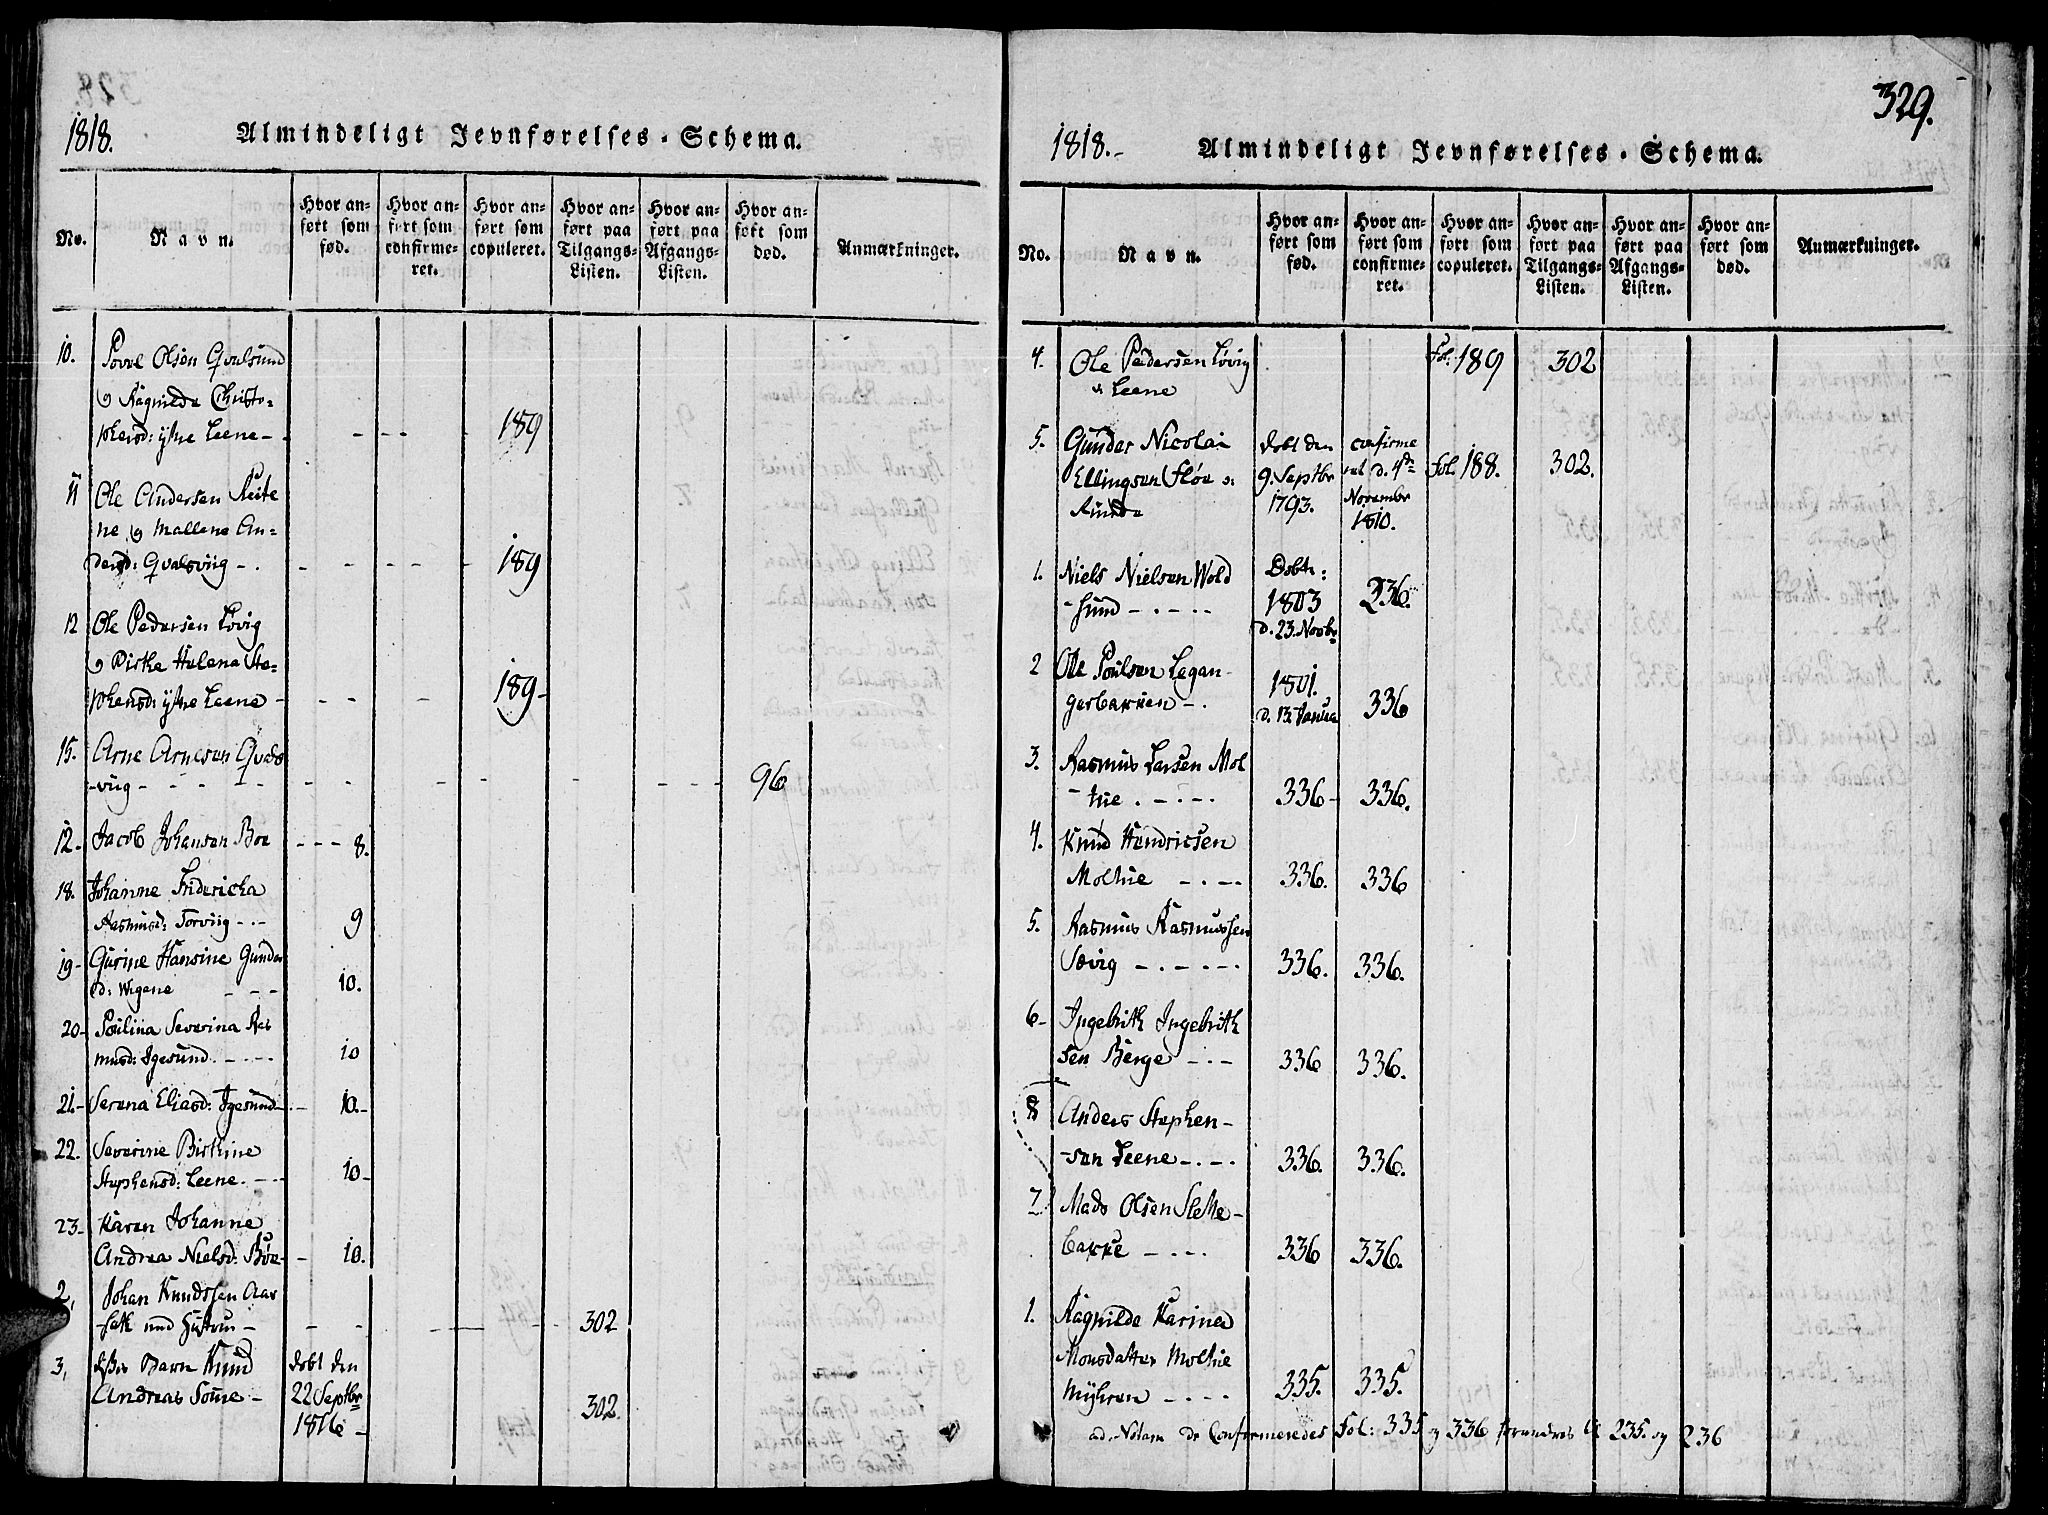 1818.
Almindeligt Jevnførelses-Schema.
No.
Navn.
Hvor anført som fød.
Hvor anført som confirmeret.
Hvor anført som copuleret.
Hvor anført paa Tilgangs-Listen.
Hvor anført paa Afgangs-Listen.
Hvor anført som død.
Anmærkninger.
10. Povel Olsen Qvalsund
& Ragnilde Christo-
phersd: ytre Leene - 189
11 Ole Andersen Reite
ne & Mallene An-
dersd: Qvalsviig - . 189
12 Ole Pedersen Løvig
& Birthe Helena Ste-
phensd: ytre Leene - 189 -
15. Arne Arnesen Qvals
-viig - 96
12. Jacob Johansen Boe - - - 8.
18. Johanne Fridericha
Rasmusd: Torviig - . - 9
19 - Gurine Hansine Gunder
d: Wigene - - - 10.
20 - Poulina Severina Ras
musd: Igesund. - . - . - 10
21. - Serena Eliasd: Igesund - . - 10. -
22. Severine Birthine
Stephensd: Leene. - . - 10 -
23 - Karen Johanne
Andrea Nielsd: Böe - - 10.
2, Johan Knudssen Aar
-sæt med Hustru - 302
3, Barn Knud døbt den
Andreas Somme - 22 Septbr 302.
1816 -
329.
1818. -
Almindeligt Jevnførelses-Schema.
No.
Navn.
Hvor anført som fød.
Hvor anført som confirmeret.
Hvor anført som copuleret.
Hvor anført paa Tilgangs-Listen.
Hvor anført paa Afgangs-Listen.
Hvor anført som død.
Anmærkninger.
4. Ole Pedersen Løvig Fol. 189 302
& Leene
5. Gunder Nicolai døbt den confirme
Ellingsen Fløe 9. Septbr ret d. 4de Fol. 188. 302.
Runde 1793. Novembr
1810.
1. Niels Nielsen Wold Døbt:
- sund - . - . - 1803 236.
d. 23. Novbr
2 Ole Poulsen Legan- 1801.
gerbakken - . d. 13 Janua 336
3. Rasmus Larsen Mol
- tue . - . - . 336 - 336.
4. Knud Hendricsen
Moltue - . - . 336. 336
5. Rasmus Rasmussen
Sævig - . - . - . 336. 336.
6 - Ingebrith Ingebrith
sen Berge - . - 336 336.
8 Anders Stephen -
- sen Leene - . - . 336. 336.
7 Mads Olsen Slette -
bakke - . - . 336 336.
1. Ragnilde Karine
Monsdatter Moltue
Myhren - . - . 335. 335.
ad Notam De Confirmeredes Fol: 335 og 336 forandres til 235. og 236